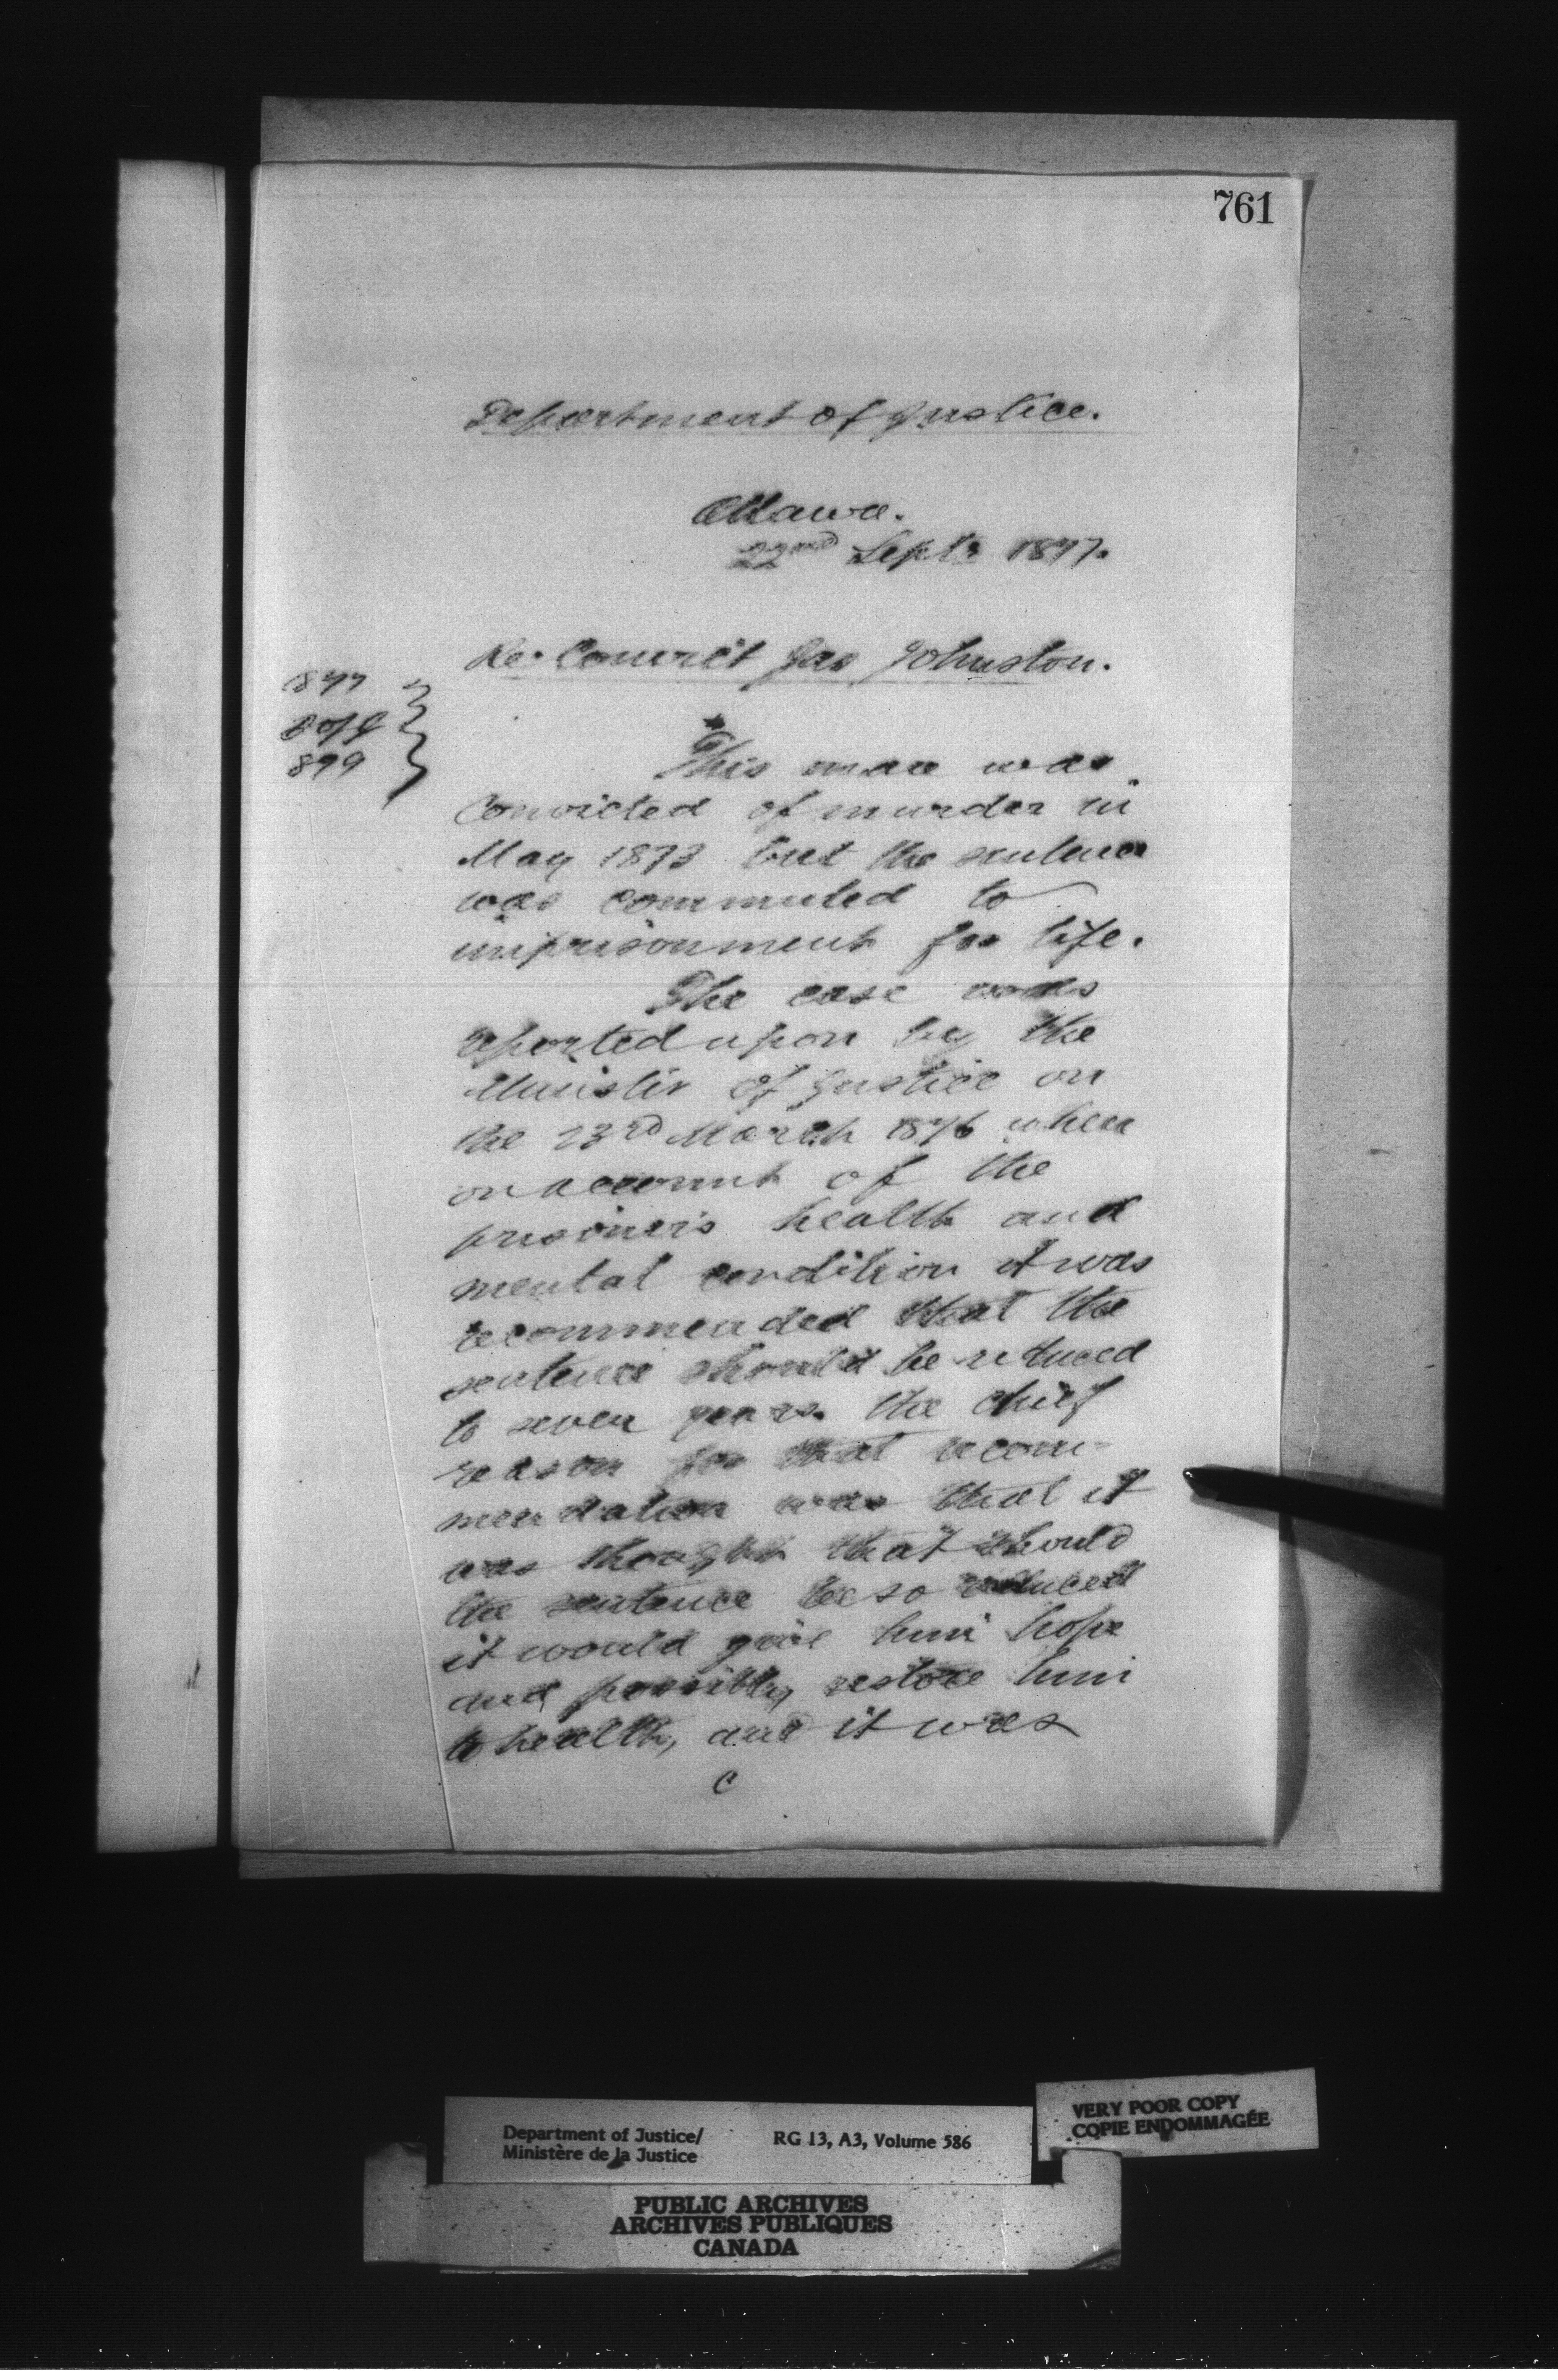 761
Department of Justice.
Ottawa.
22nd Sept. 1877.
Re. Convict Jas Johnston.
1877
899
This man was
Convicted of murder in
May 1873 but the sentence
was commuted to
imprisonment for life.
The case was
reported upon by the
Minister of Justice on
the 23rd March 1876 when
on account of the
prisoner's health and
mental condition it was
recommended that the
sentence should be reduced
to seven years. the chief
reason for that recom-
mendation was that it
was thought that should
the sentence be so reduced
it would give him hope
and possibly restore him
to health, and it was
C
Department of Justice/
Ministère de la Justice
RG 13, A3, Volume 586
VERY POOR COPY
COPIE ENDOMMAGÉE
PUBLIC ARCHIVES
ARCHIVES PUBLIQUES
CANADA